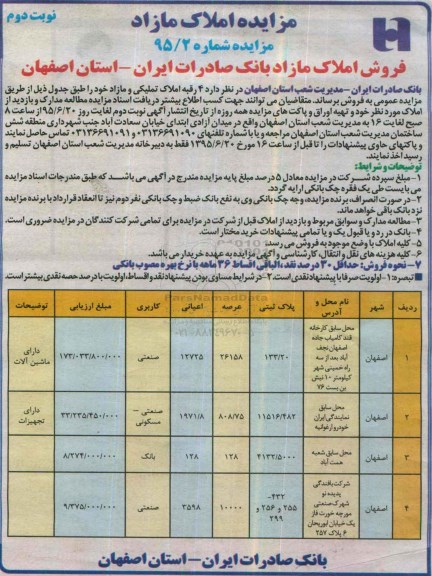 نوبت دوم
مزایده املاک مازاد
مزایده شماره ۹۵/۲
فروش املاک مازاد بانک صادرات ایران - استان اصفهان
بانک صادرات ایران - مدیریت شعب استان اصفهان در نظر دارد ۴ رقبه املاک تملیکی و مازاد خود را طبق جدول ذیل از طریق
مزایده عمومی به فروش برساند. متقاضیان می توانند جهت کسب اطلاع بیشتر دریافت اسناد مزایده مطالعه مدارک و بازدید از
املاک مورد نظر خود و تهیه اوراق و پاکت های مزایده همه روزه از تاریخ انتشار آگهی نوبت دوم لغایت روز ۹۵/۶/۲۰ از ساعت ۸
صبح لغایت ۱۶ به مدیریت شعب استان اصفهان واقع در میدان آزادی ابتدای خیابان سعادت آباد جنب شهرداری منطقه شش
ساختمان مدیریت شعب استان اصفهان مراجعه و یا با شماره تلفنهای ۰۳۱۳۶۶۹۱۰۹۰ و ۰۳۱۳۶۶۹۱۰۹۱ تماس حاصل نمایند
و پاکتهای حاوی پیشنهادات را تا قبل از ساعت ۱۶ مورخ ۱۳۹۵/۶/۲۰ فقط به دبیرخانه مدیریت شعب استان اصفهان تسلیم و
رسید اخذ نمایند.
توضیحات و شرایط:
۱- مبلغ سپرده شرکت در مزایده معادل ۵ درصد مبلغ پایه مزایده مندرج در آگهی می باشد که طبق مندرجات اسناد مزایده
می بایست طی یک فقره چک بانکی ارایه گردد.
۲- در صورت انصراف برنده مزایده، وجه چک بانکی وی به نفع بانک ضبط و چک بانکی نفر دوم نیز تا انعقاد قرارداد با برنده مزایده
نزد بانک باقی خواهد ماند.
۳- مطالعه مدارک و سوابق مربوط و بازدید از املاک قبل از شرکت در مزایده برای تمامی شرکت کنندگان در مزایده ضروری است.
۴- بانک در رد و یا قبول یک و یا تمامی پیشنهادات خرید مختار است.
۵- کلیه املاک با وضع موجود به فروش می رسد.
۶- کلیه هزینه های نقل و انتقال، کارشناسی و آگهی مزایده به عهده خریدار می باشد.
۷- نحوه فروش: حداقل ۳۰ درصد نقد، الباقی اقساط ۳۶ ماهه با نرخ بهره مصوب بانکی
تبصره: ۱- اولویت صرفا با پیشنهاد نقدی است. ۲- در شرایط مساوی بودن پیشنهاد نقد و اقساط، اولویت با درصد حصه نقدی بیشتر است.
ردیف شهر نام محل و آدرس پلاک ثبتی عرصه اعیانی کاربری مبلغ ارزیابی توضیحات
۱ اصفهان محل سابق کارخانه قند کامیاب جاده اصفهان نجف آباد بعد از سه راه خمینی شهر کیلومتر ۱۰ نبش بن بست ۷۶ ۱۳۳/۲۰ ۲۶۱۵۸ ۱۲۷۲۵ صنعتی ۱۷۳/۰۳۳/۸۰۰/۰۰۰ دارای ماشین آلات
۲ اصفهان محل سابق نمایندگی ایران خودرو ارغوانیه ۱۱۵۱۶/۴۸۲ ۸۰۸/۷۵ ۱۹۷۱/۸ صنعتی - مسکونی ۳۳/۲۳۵/۴۵۰/۰۰۰ دارای تجهیزات
۳ اصفهان محل سابق شعبه همت آباد ۴۱۳۲/۵۰۰۰ ۱۲۸ ۱۲۸ بانک ۸/۲۷۴/۰۰۰/۰۰۰
۴ اصفهان شرکت بافندگی پدیده نو شهرک صنعتی مورچه خورت فاز یک خیابان ابوریحان ۶ پلاک ۲۵۷ ۴۳۲- ۲۵۵ و ۲۵۶ و ۲۹۹ ۱۰۰۰۰ ۳۵۹۸ صنعتی ۹/۳۷۵/۰۰۰/۰۰۰
بانک صادرات ایران - استان اصفهان